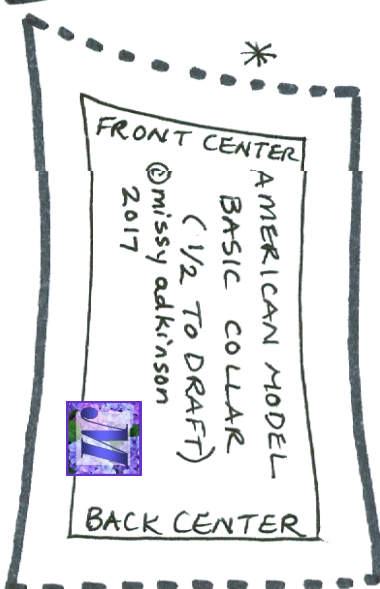 *
FRONT CENTER
AMERICAN MODEL
BASIC COLLAR
(1/2 TO DRAFT)
©missy adkinson
2017
W
BACK CENTER